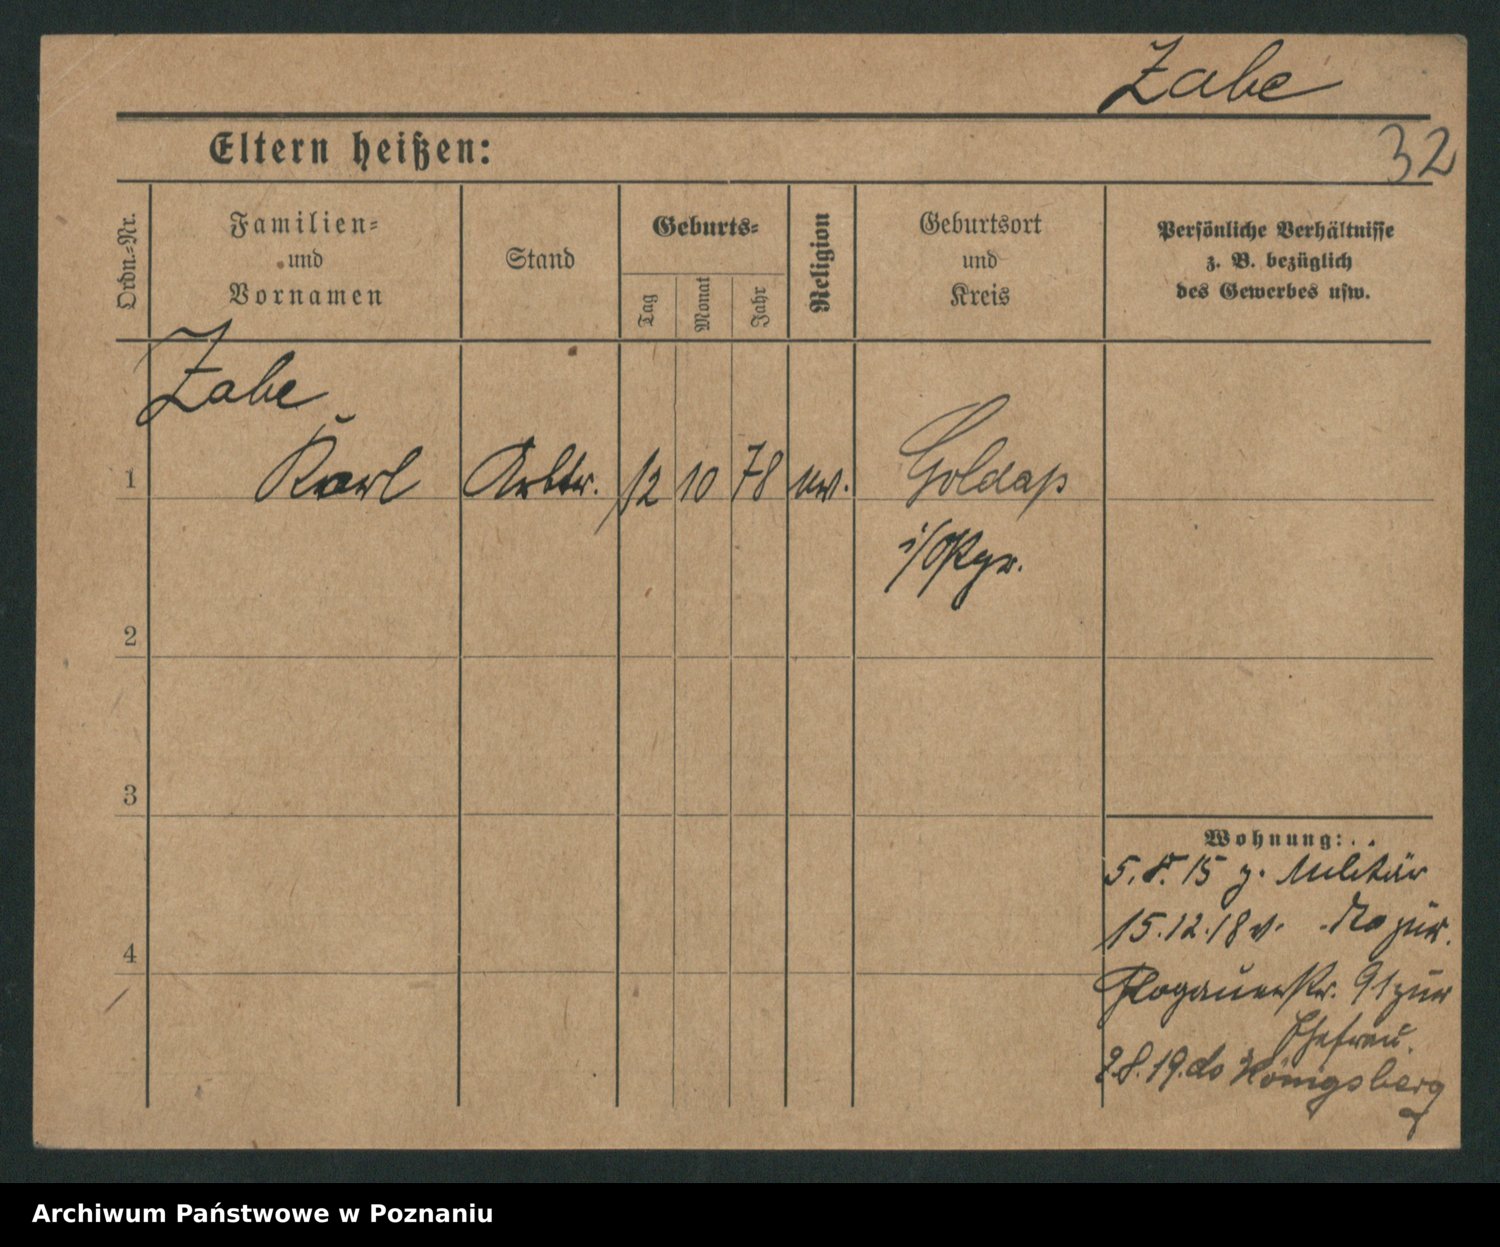 Zabe
32
Eltern heißen:
Ordn.-Nr.
Familien- und Vornamen
Stand
Geburts-
Tag
Monat
Jahr
Religion
Geburtsort und Kreis
Persönliche Verhältnisse z. B. bezüglich des Gewerbes usw.
Zabe
1 Karl Arbtr. 12 10 78 ev. Goldap
i/OPr.
2
3
4
Wohnung:
5.8.15 z. Militär
15.12.18 v. zur.
Glogauerstr. 91 zur
Ehefrau.
2.8.19. do Königsberg
Archiwum Państwowe w Poznaniu